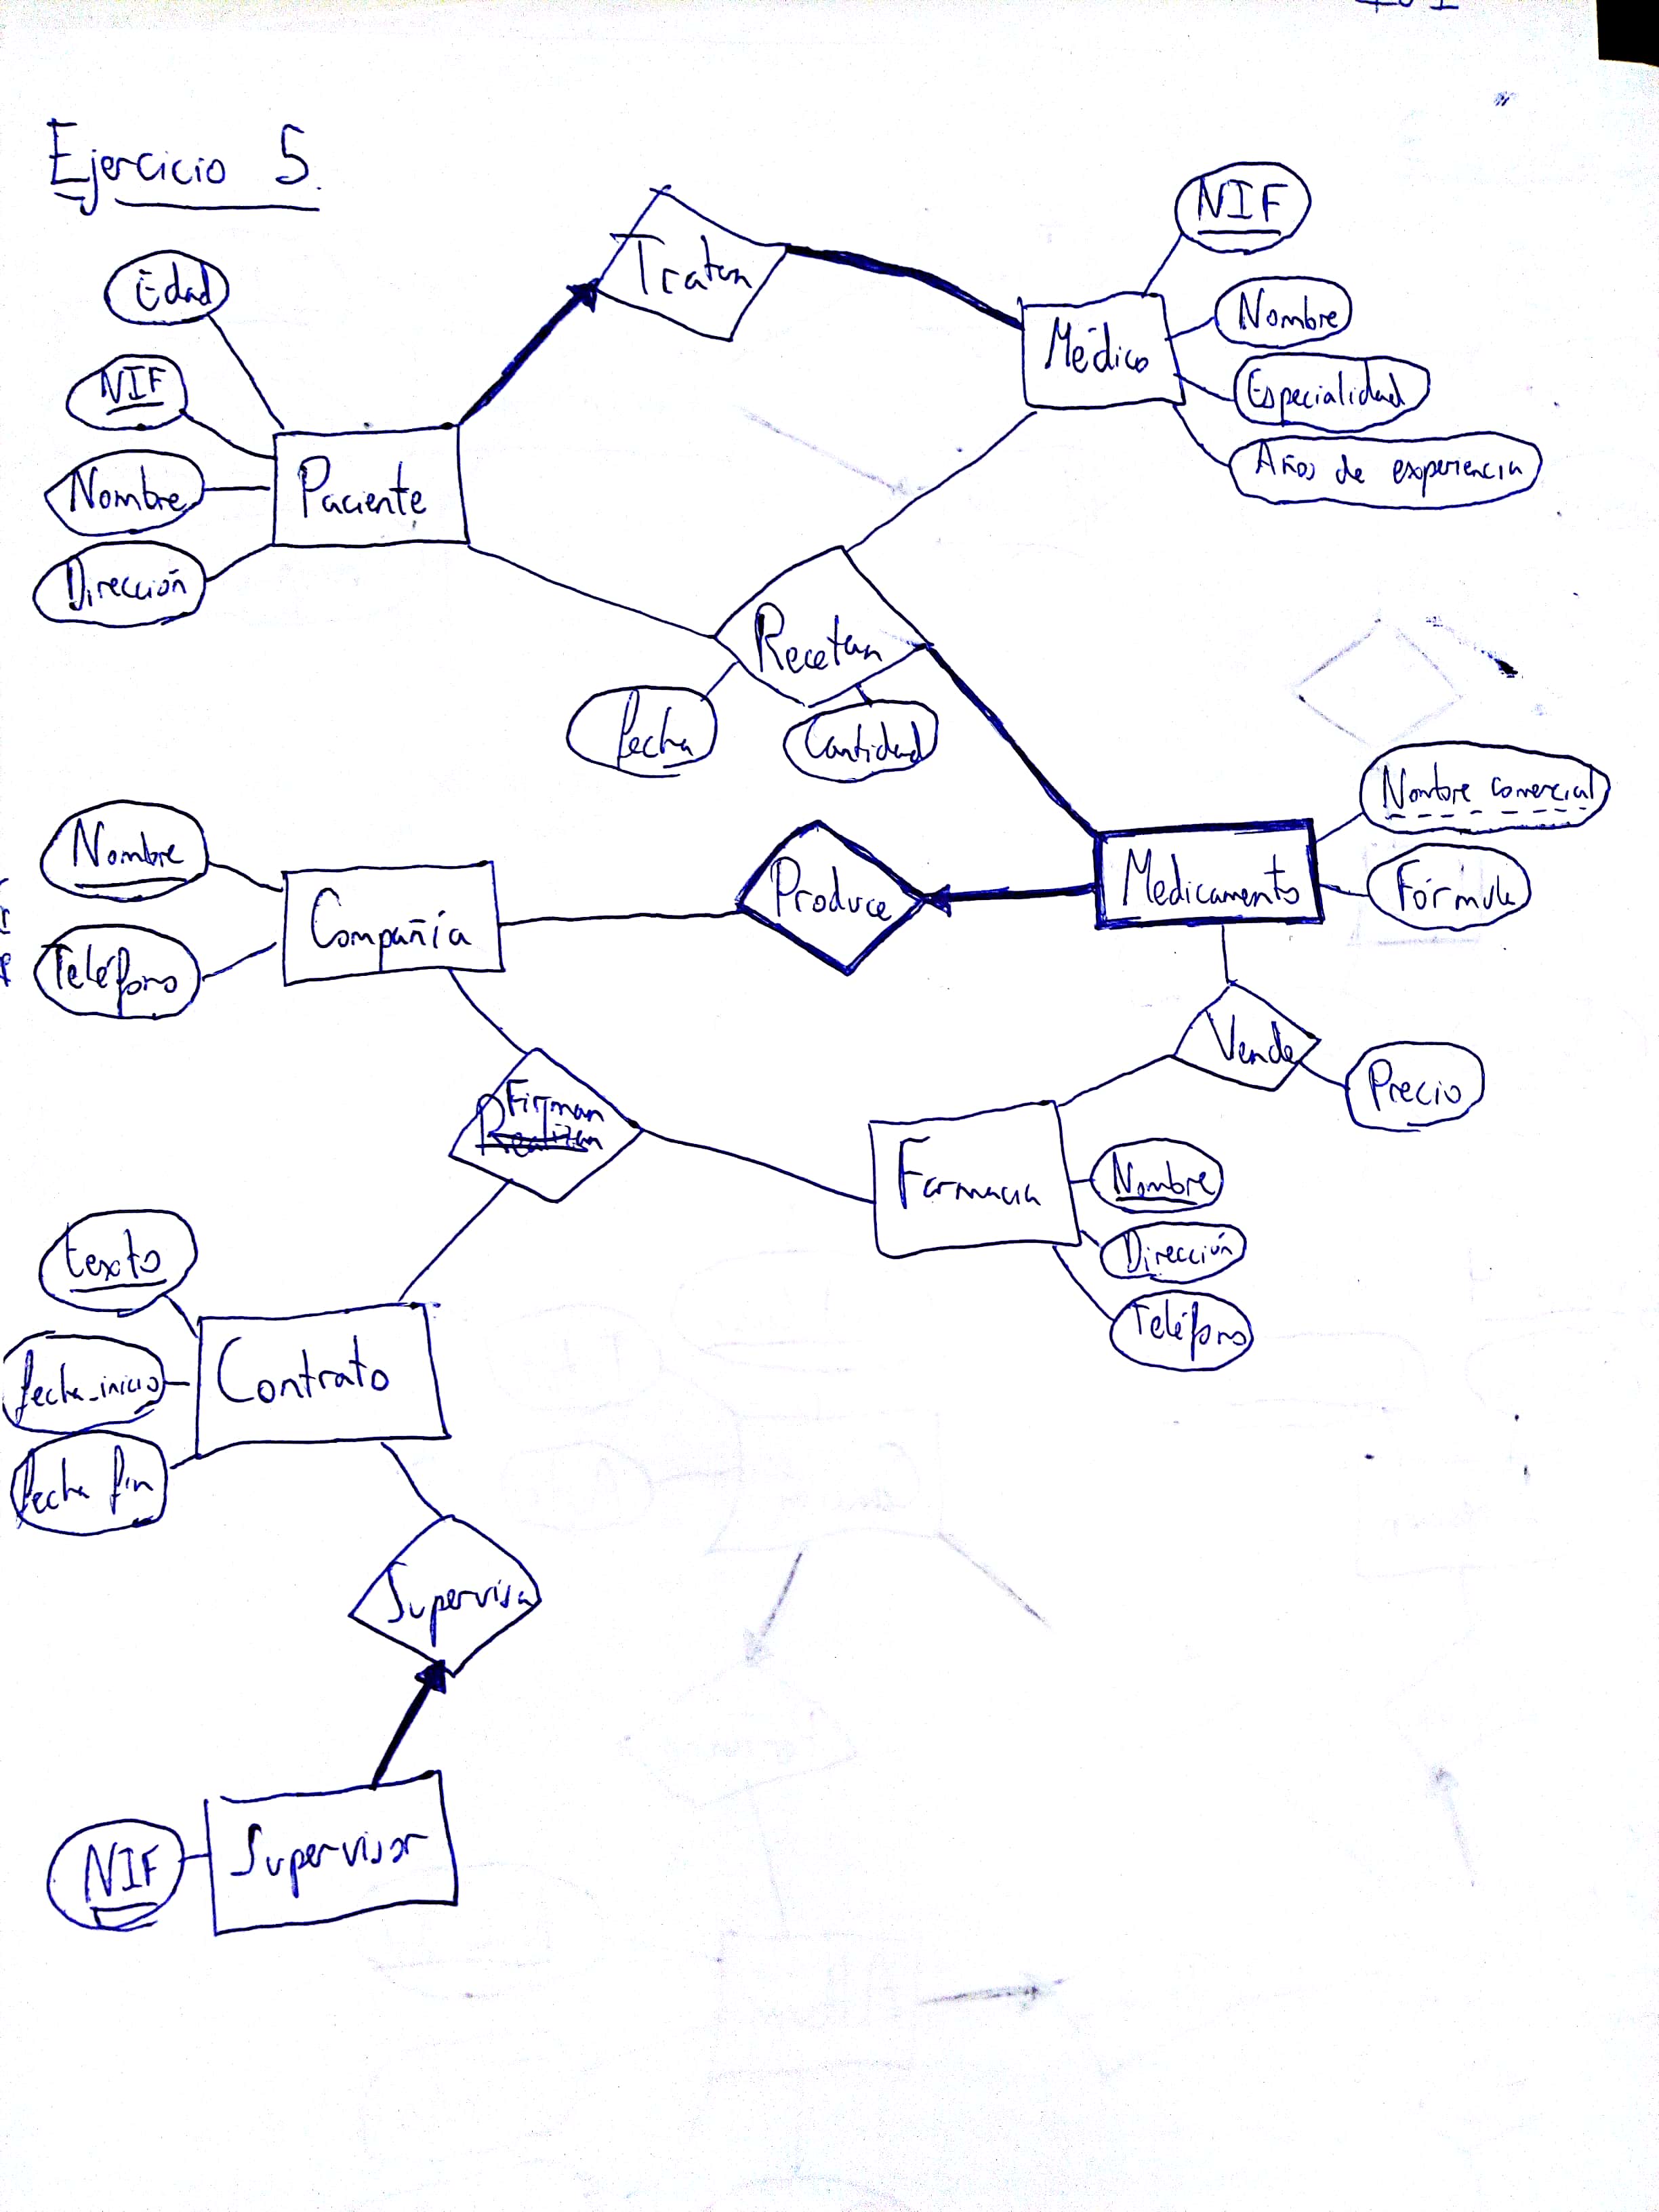 Ejercicio 5.
Edad
NIF
Nombre
Dirección
Paciente
Tratan
NIF
Nombre
Especialidad
Años de experiencia
Médico
Recetan
fecha
Cantidad
Nombre
Teléfono
Compañía
Produce
Medicamento
Nombre comercial
Fórmula
Vende
Precio
Firman
Realizan
Farmacia
Nombre
Dirección
Teléfono
texto
fecha_inicio
fecha fin
Contrato
Supervisa
NIF
Supervisor